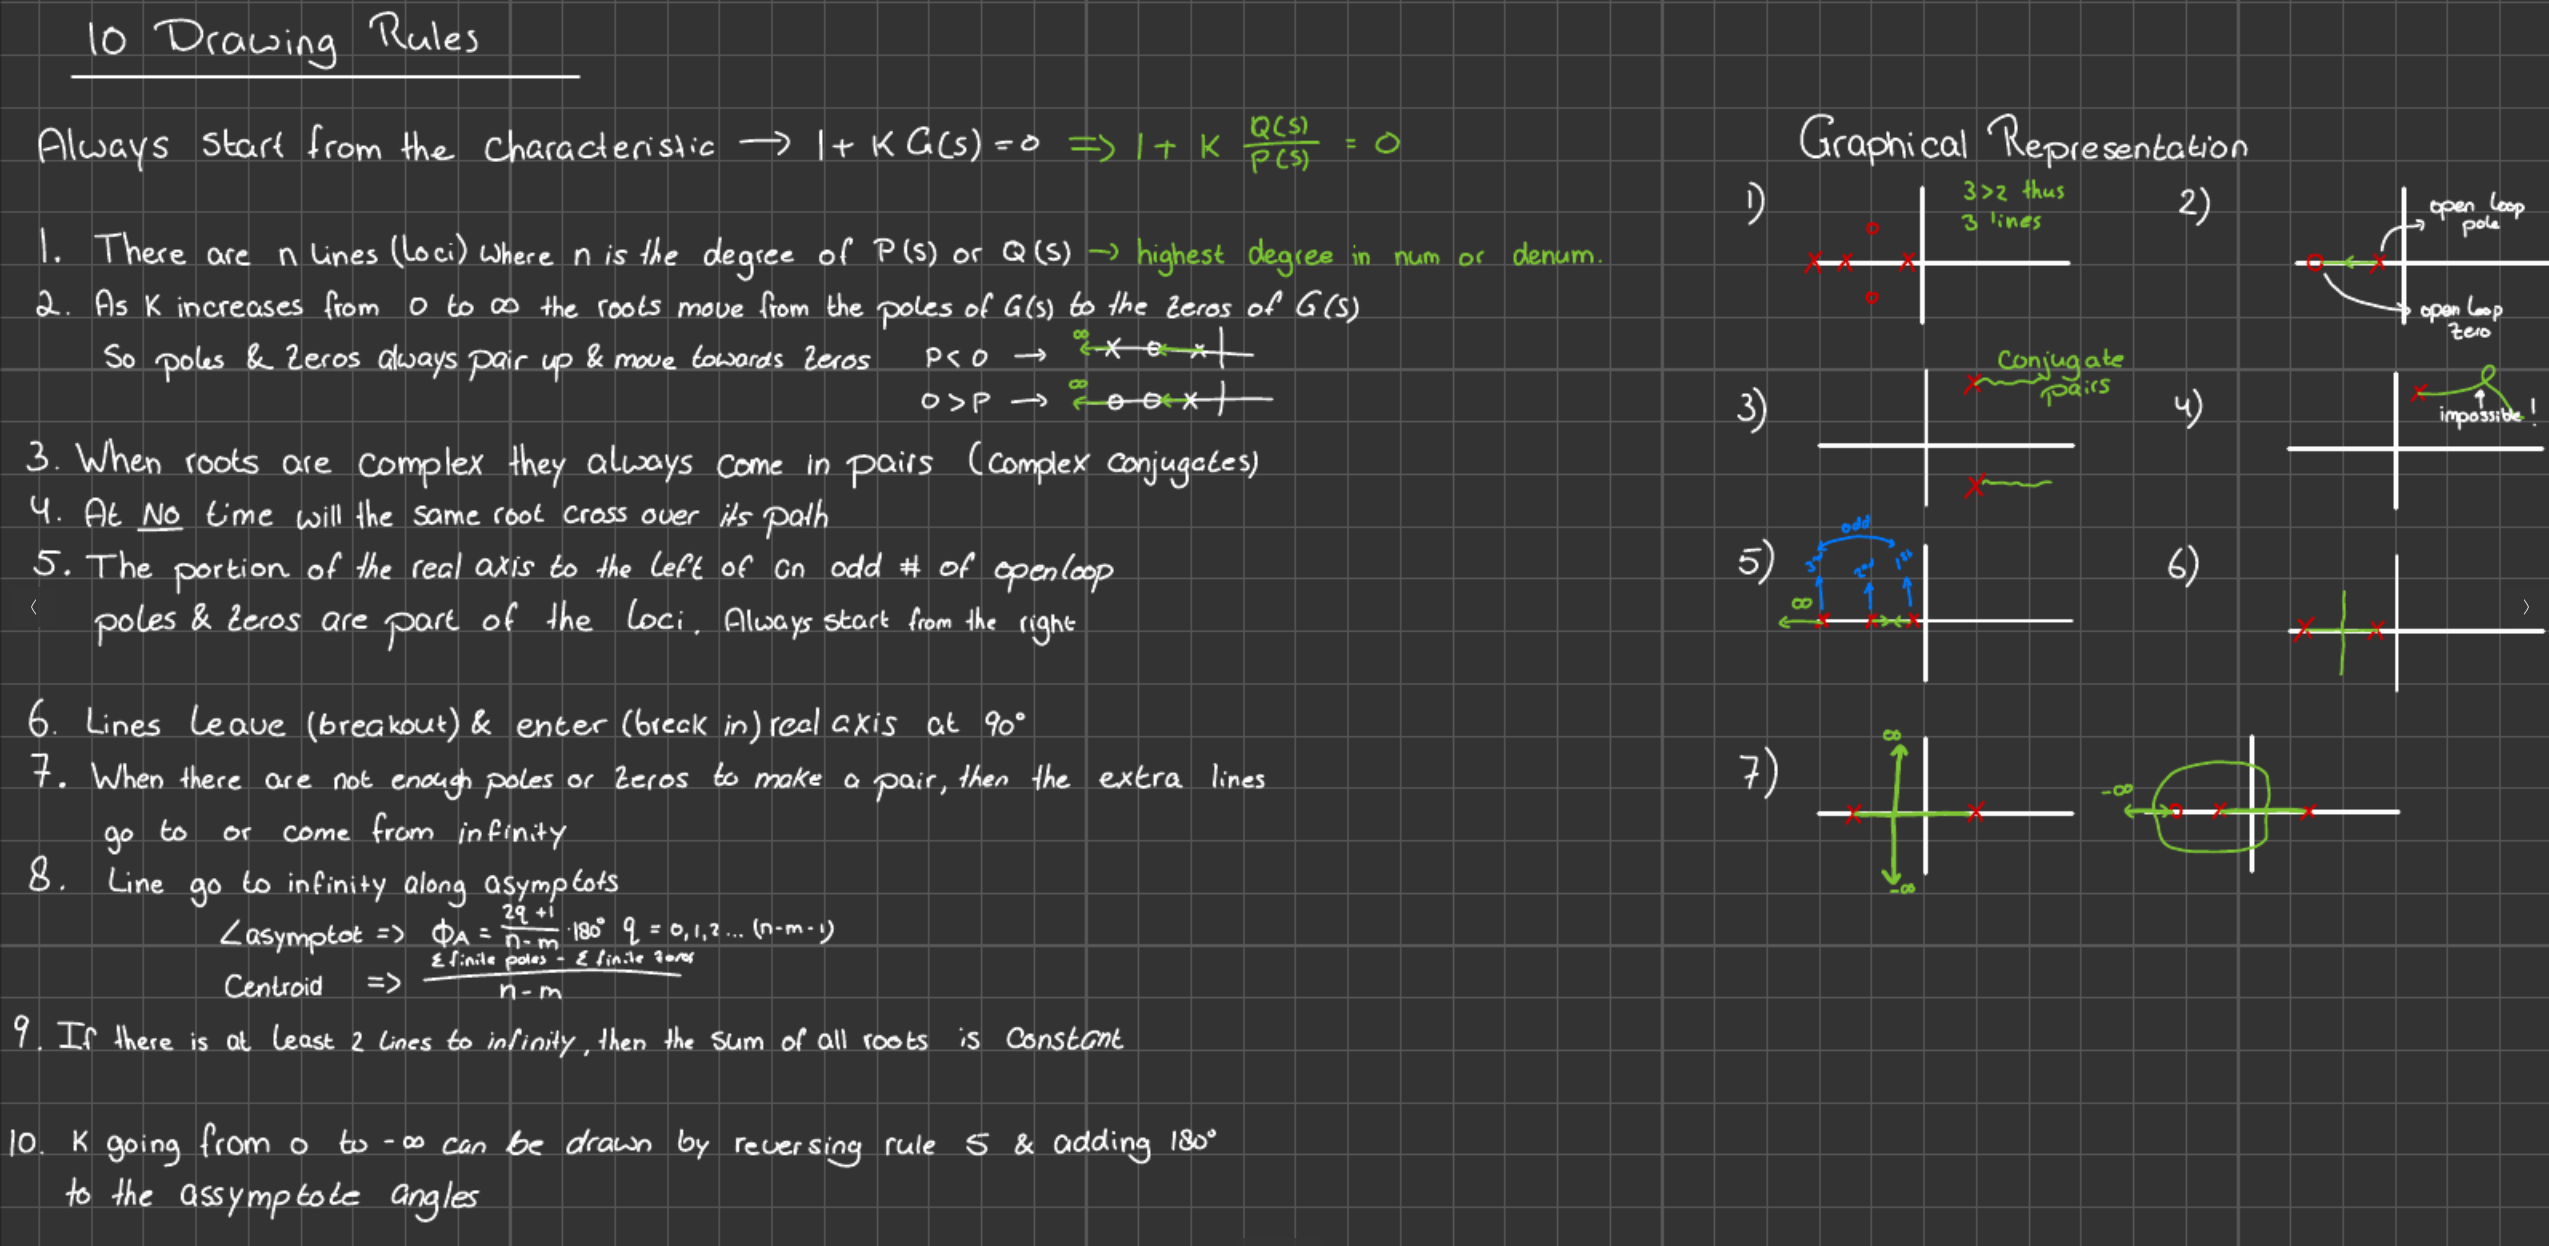 10 Drawing Rules
Always start from the characteristic → 1 + K G(s) = 0 ⇒ 1 + K Q(s)/P(s) = 0
1. There are n lines (loci) where n is the degree of P(s) or Q(s) → highest degree in num or denum.
2. As K increases from 0 to ∞ the roots move from the poles of G(s) to the zeros of G(s)
So poles & zeros always pair up & move towards zeros P < 0 → ∞
0 > P → ∞
3. When roots are complex they always come in pairs (complex conjugates)
4. At NO time will the same root cross over its path
5. The portion of the real axis to the left of an odd # of openloop
poles & zeros are part of the loci. Always start from the right
6. Lines leave (breakout) & enter (break in) real axis at 90°
7. When there are not enough poles or zeros to make a pair, then the extra lines
go to or come from infinity
8. Line go to infinity along asymptots
∠asymptot => ΦA = (2q+1)/(n-m) · 180° q = 0,1,2... (n-m-1)
Centroid => (Σ finite poles - Σ finite zeros)/(n-m)
9. If there is at least 2 lines to infinity, then the sum of all roots is constant
10. K going from 0 to -∞ can be drawn by reversing rule 5 & adding 180°
to the assymptote angles
Graphical Representation
1)
3>2 thus
3 lines
2)
open loop
pole
open loop
zero
3)
Conjugate
pairs
4)
impossible!
5)
odd
3rd 2nd 1st
∞
6)
7)
∞
-∞
-∞